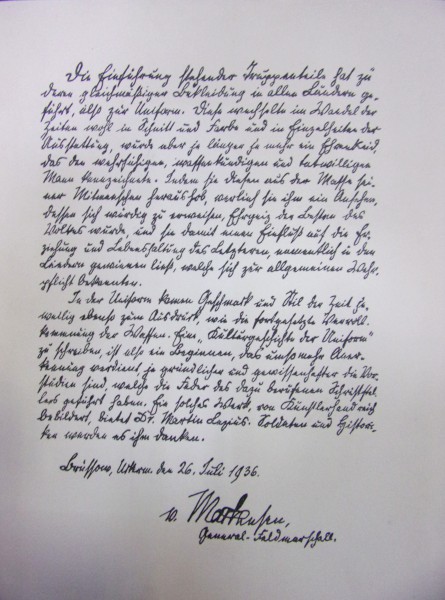 Die Einführung stehender Truppenteile hat zu
deren gleichmäßiger Bekleidung in allen Ländern ge-
führt, also zur Uniform. Diese wechselte im Wandel der
Zeiten wohl in Schnitt und Farbe und in Einzelheiten der
Ausstattung, wurde aber je länger je mehr ein Ehrenkleid,
das den wehrfähigen, waffenkundigen und tatwilligen
Mann kennzeichnete. Indem sie diesen aus der Masse sei-
ner Mitmenschen heraushob, verlieh sie ihm ein Ansehen,
dessen sich würdig zu erweisen, Ehrgeiz der Besten des
Volkes wurde, und sie damit einen Einfluß auf die Er-
ziehung und Lebenshaltung des Letzteren, namentlich in den
Ländern gewinnen ließ, welche sich zur allgemeinen Wehr-
pflicht bekannten.
In der Uniform kamen Geschmack und Stil der Zeit je-
weilig ebenso zum Ausdruck, wie die fortgesetzte Vervoll-
kommnung der Waffen. Eine „Kulturgeschichte der Uniform"
zu schreiben, ist also ein Beginnen, das umso mehr Aner-
kennung verdient, je gründlicher und gewissenhafter die Vor-
studien sind, welche die Feder des dazu berufenen Schriftstel-
lers geführt haben. Ein solches Werk, von Künstlerhand reich
bebildert, bietet Dr. Martin Lezius. Soldaten und Histori-
ker werden es ihm danken.
Brüssow, Uckerm. den 26. Juli 1936.
v. Mackensen,
General-Feldmarschall.